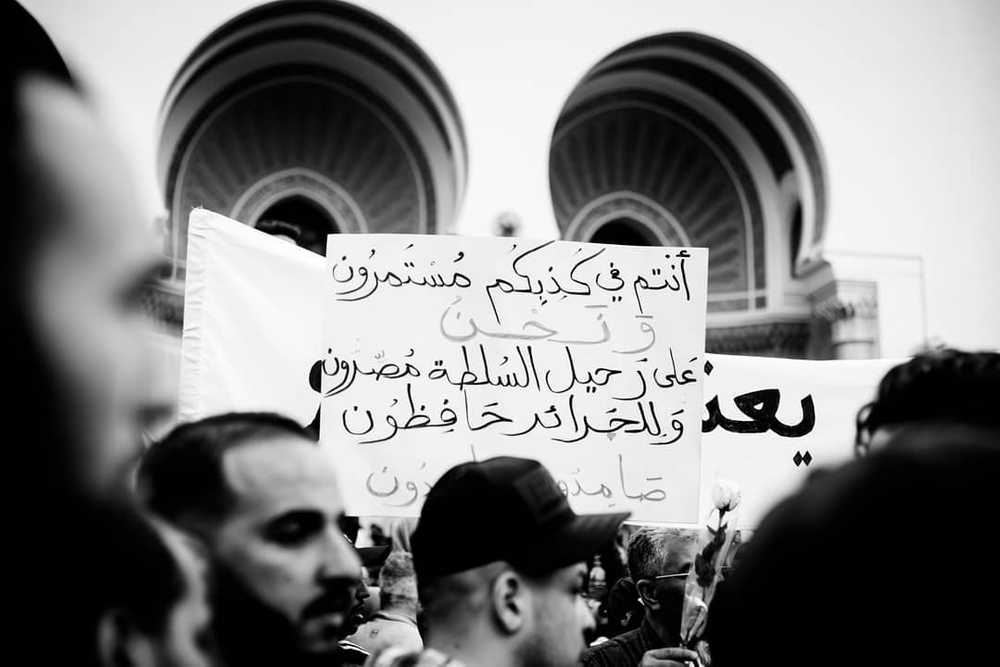 أَنتم في كَذِبِكُم مُسْتَمَرُون
وَ نَحْن
عَلى رَحيل السُلطة مُصّرُون
وَللِحَرائر حَافِظُون
صَامِدُو
يعن